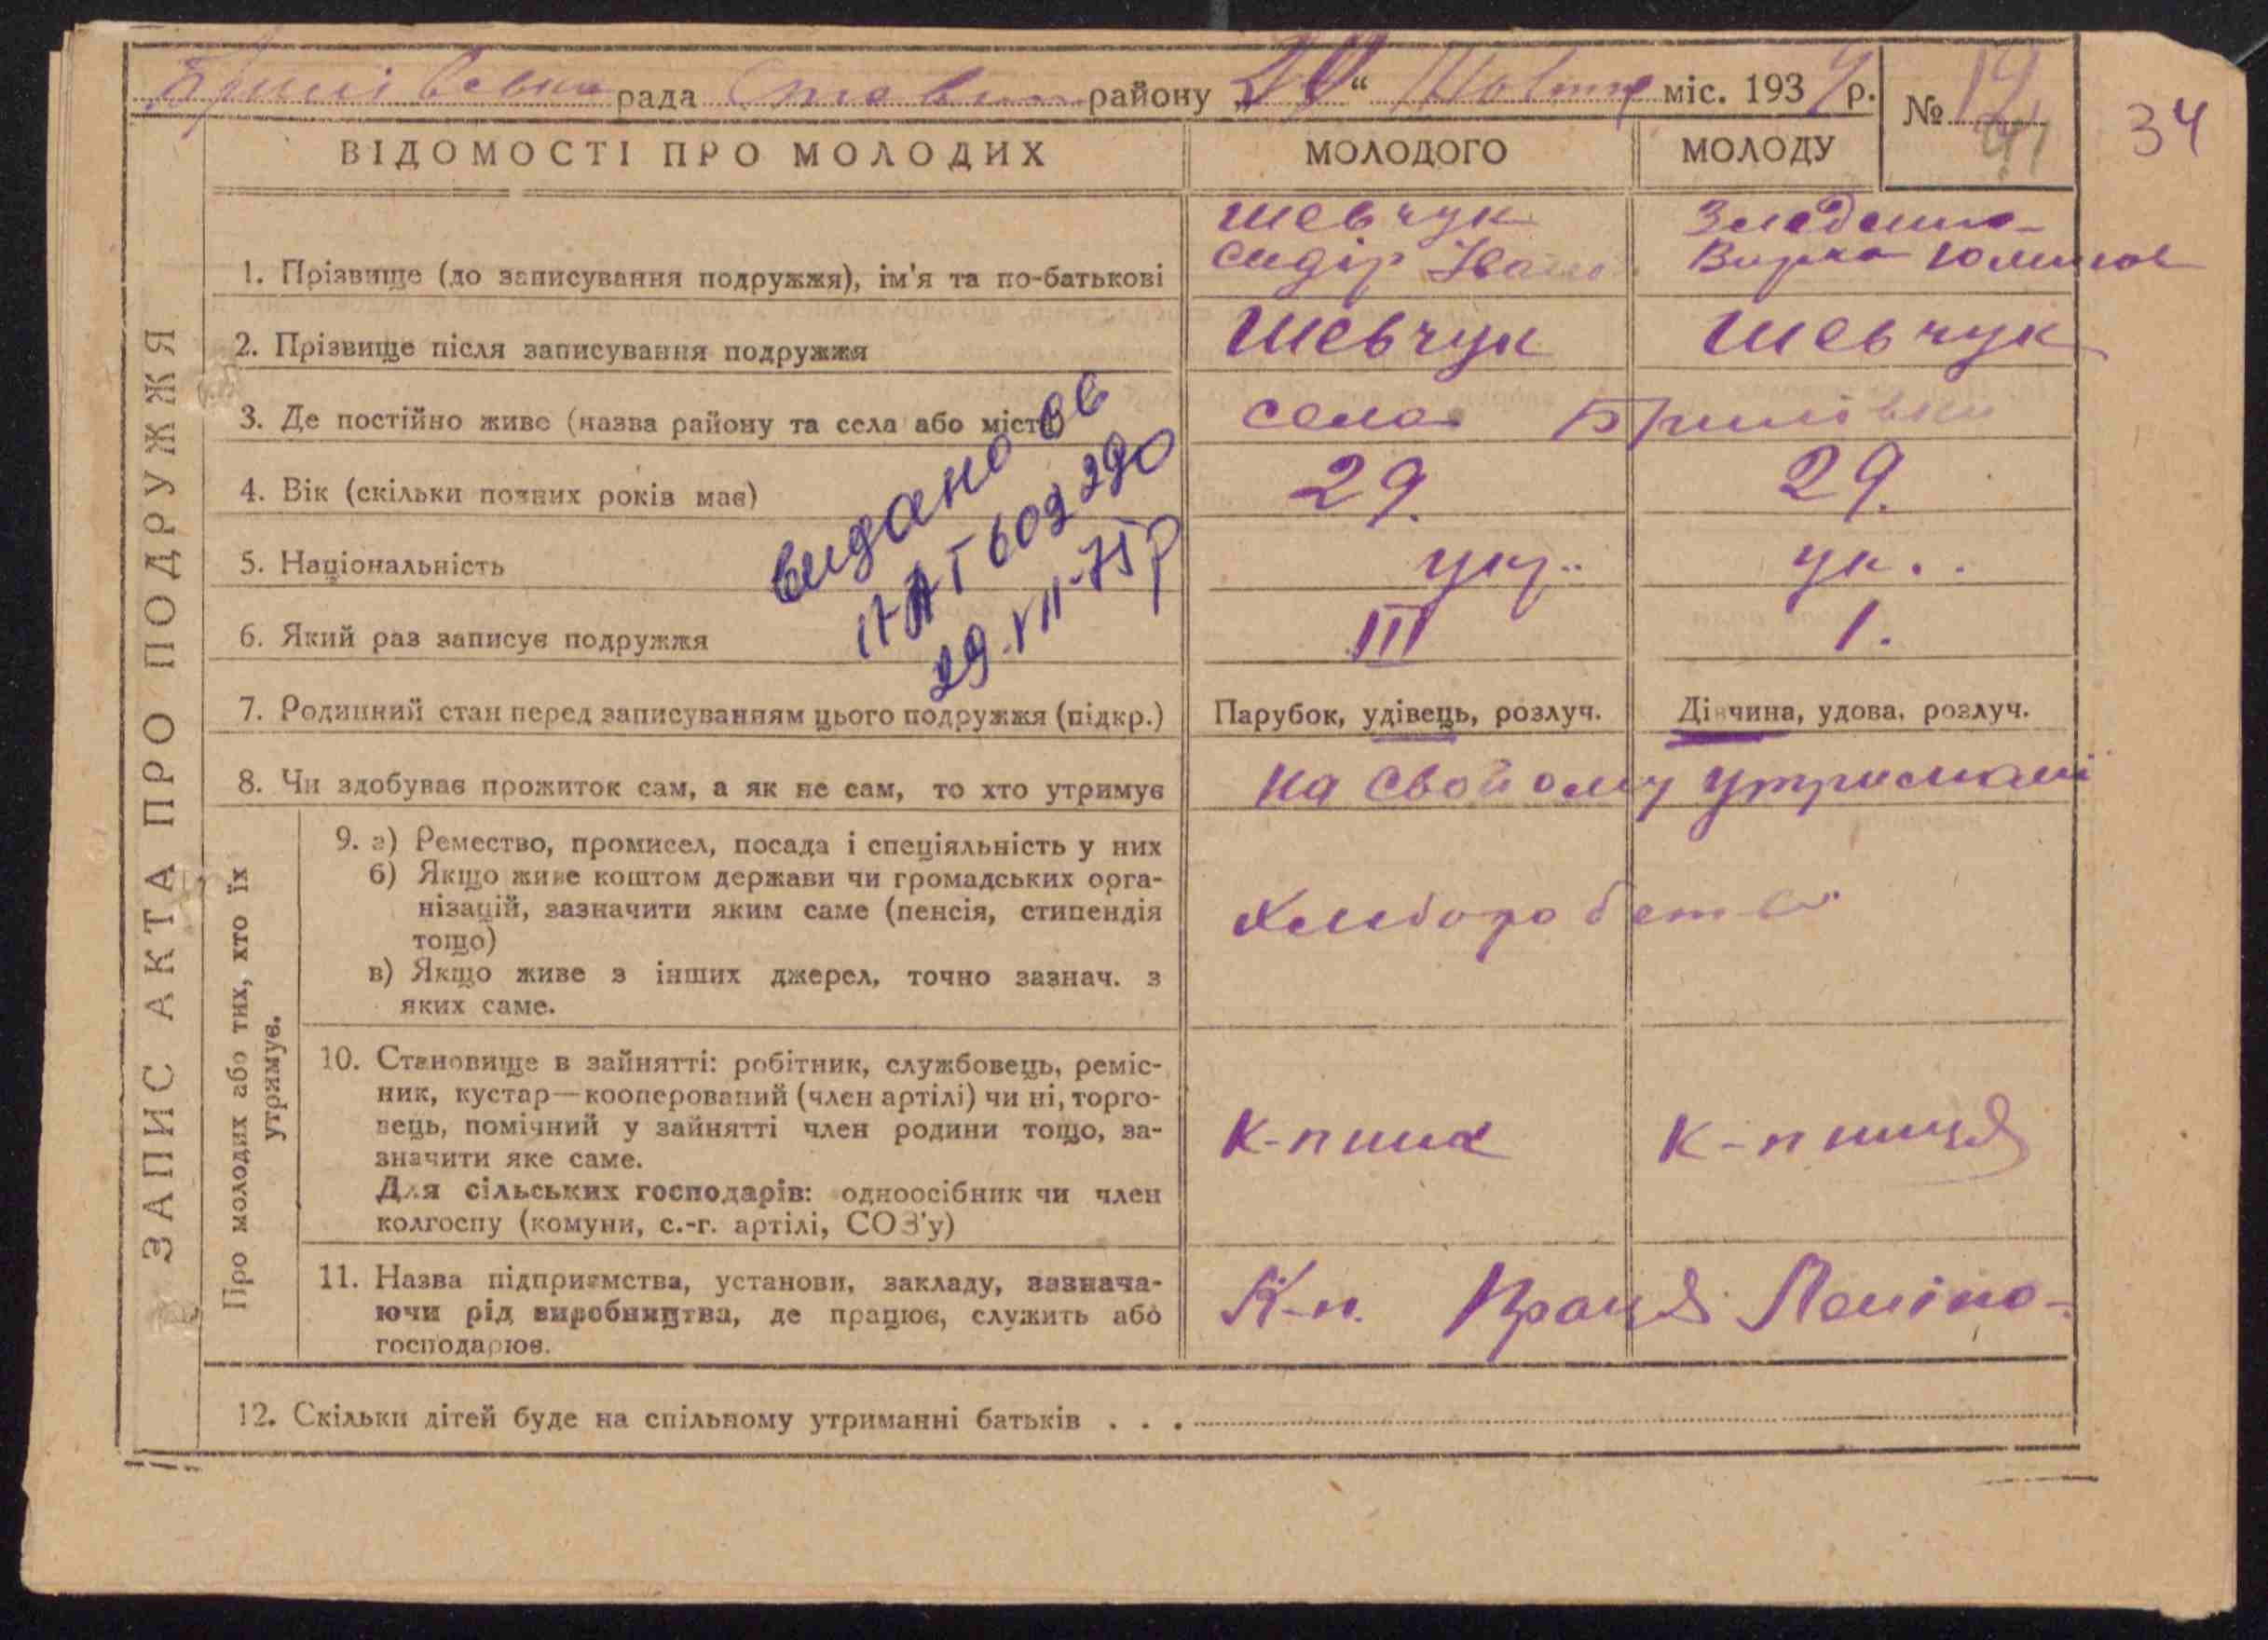 рада района району „29“ міс. 193 р. №
34
ВІДОМОСТІ ПРО МОЛОДИХ МОЛОДОГО МОЛОДУ
ЗАПИС АКТА ПРО ПОДРУЖЖЯ
1. Прізвище (до записування подружжя), ім'я та по-батькові Шевчук Сидір
2. Прізвище після записування подружжя Шевчук Шевчук
3. Де постійно живе (назва району та села або міста) село
4. Вік (скільки повних років має) 29. 29.
5. Національність укр.. ук..
6. Який раз записує подружжя III 1.
видано
29.VII-75р
7. Родинний стан перед записуванням цього подружжя (підкр.) Парубок, удівець, розлуч. Дівчина, удова, розлуч.
8. Чи здобуває прожиток сам, а як не сам, то хто утримує на свойому утримані
Про молодих або тих, хто їх
утримує.
9. а) Ремество, промисел, посада і спеціяльність у них
б) Якщо живе коштом держави чи громадських орга-
нізацій, зазначити яким саме (пенсія, стипендія
тощо)
в) Якщо живе з інших джерел, точно зазнач. з
яких саме.
Хлиборобство
10. Становище в зайнятті: робітник, службовець, реміс-
ник, кустар—кооперований (член артілі) чи ні, торго-
вець, помічний у зайнятті член родини тощо, за-
значити яке саме.
Для сільських господарів: одноосібник чи член
колгоспу (комуни, с.-г. артілі, СОЗ'у)
К-пник К-пниця
11. Назва підприємства, установи, закладу, зазнача-
ючи рід виробництва, де працює, служить або
господарює.
К-п. Праця Леніна
12. Скільки дітей буде на спільному утриманні батьків . . .